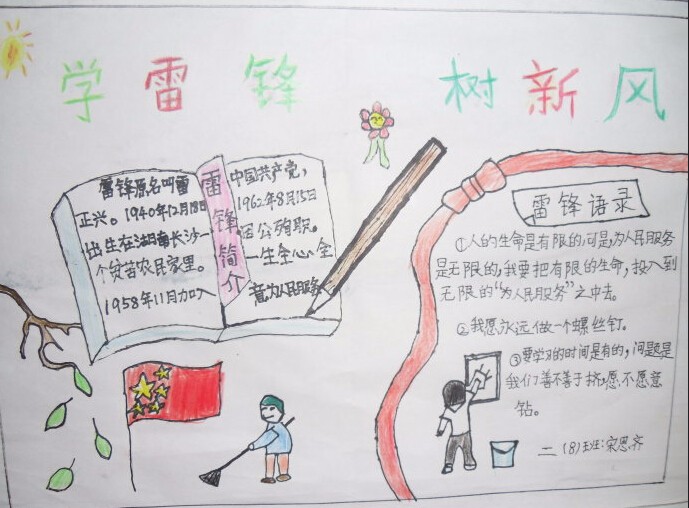 学雷锋 树新风
雷锋原名叫雷
正兴。1940年12月18日
出生在湖南长沙一
个贫苦农民家里。
1958年11月加入
雷锋简介
中国共产党，
1962年8月15日
因公殉职。
一生全心全
意为人民服务
雷锋语录
①人的生命是有限的，可是，为人民服务
是无限的，我要把有限的生命，投入到
无限的“为人民服务”之中去。
②我愿永远做一个螺丝钉。
③要学习的时间是有的，问题是
我们善不善于挤，愿不愿意
钻。
二（8）班：宋思齐